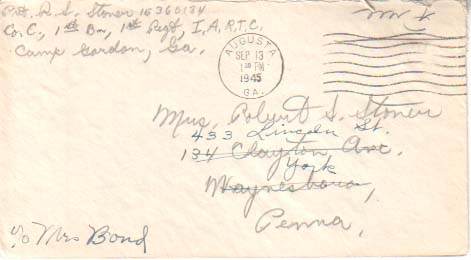 Pvt. R. S. Stoner 15360134
Co. C, 1st Bn, 1st Regt, I.A.R.T.C.
Camp Gordon, Ga.
AUGUSTA
SEP 13
1 30 PM
1945
GA.
Mrs. Robert S. Stoner
433 Lincoln St.
134 Clayton Ave.
York
Waynesboro,
Penna,
c/o Mrs Bond